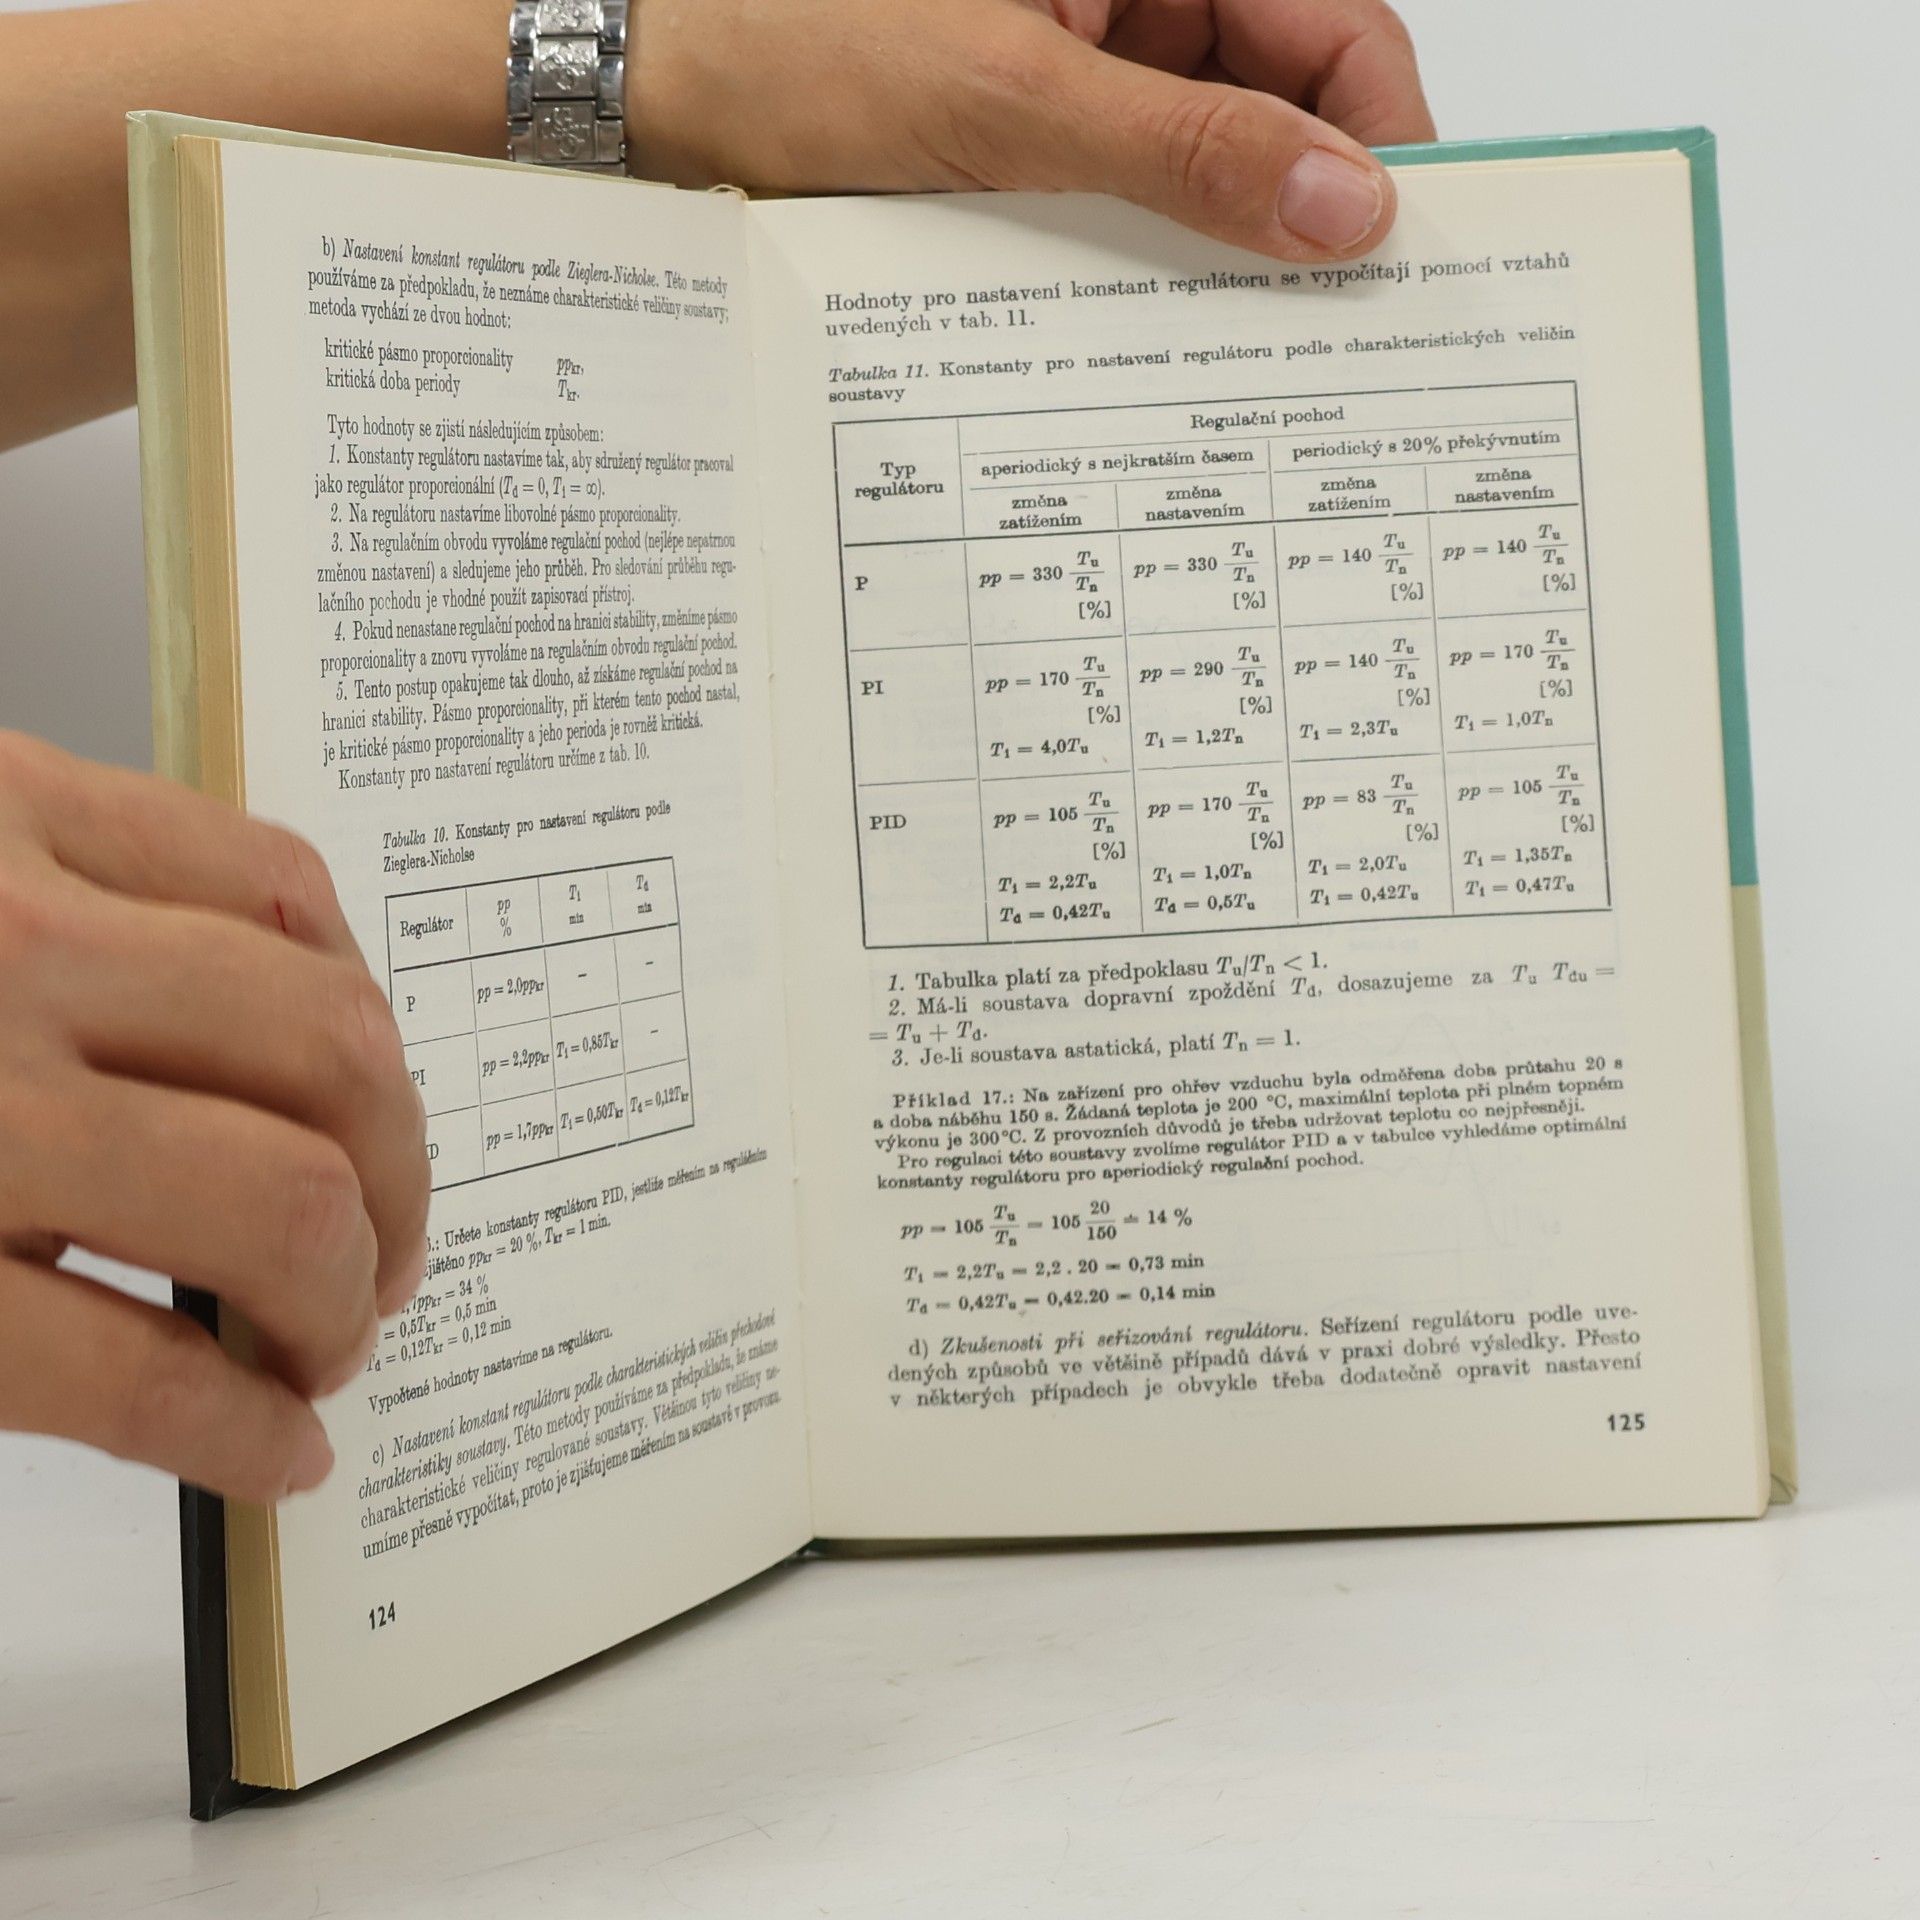 b) Nastavení konstant regulátoru podle Zieglera-Nicholse. Této metody
používáme za předpokladu, že neznáme charakteristické veličiny soustavy;
metoda vychází ze dvou hodnot:
kritické pásmo proporcionality pp_kr,
kritická doba periody T_kr.
Tyto hodnoty se zjistí následujícím způsobem:
1. Konstanty regulátoru nastavíme tak, aby sdružený regulátor pracoval
jako regulátor proporcionální (T_d = 0, T_i = ∞).
2. Na regulátoru nastavíme libovolné pásmo proporcionality.
3. Na regulačním obvodu vyvoláme regulační pochod (nejlépe nepatrnou
změnou nastavení) a sledujeme jeho průběh. Pro sledování průběhu regu-
lačního pochodu je vhodné použít zapisovací přístroj.
4. Pokud nenastane regulační pochod na hranici stability, změníme pásmo
proporcionality a znovu vyvoláme na regulačním obvodu regulační pochod.
5. Tento postup opakujeme tak dlouho, až získáme regulační pochod na
hranici stability. Pásmo proporcionality, při kterém tento pochod nastal,
je kritické pásmo proporcionality a jeho perioda je rovněž kritická.
Konstanty pro nastavení regulátoru určíme z tab. 10.
Tabulka 10. Konstanty pro nastavení regulátoru podle
Zieglera-Nicholse
Regulátor pp % T_i min T_d min
P pp = 2,0pp_kr – –
PI pp = 2,2pp_kr T_i = 0,85T_kr –
D pp = 1,7pp_kr T_i = 0,50T_kr T_d = 0,12T_kr
.: Určete konstanty regulátoru PID, jestliže měřením na regulačním
jištěno pp_kr = 20 %, T_kr = 1 min.
1,7pp_kr = 34 %
= 0,5T_kr = 0,5 min
T_d = 0,12T_kr = 0,12 min
Vypočtené hodnoty nastavíme na regulátoru.
c) Nastavení konstant regulátoru podle charakteristických veličin přechodové
charakteristiky soustavy. Této metody používáme za předpokladu, že známe
charakteristické veličiny regulované soustavy. Většinou tyto veličiny ne-
umíme přesně vypočítat, proto je zjišťujeme měřením na soustavě v provozu.
124
Hodnoty pro nastavení konstant regulátoru se vypočítají pomocí vztahů
uvedených v tab. 11.
Tabulka 11. Konstanty pro nastavení regulátoru podle charakteristických veličin
soustavy
Typ regulátoru Regulační pochod
aperiodický s nejkratším časem periodický s 20% překývnutím
změna zatížením změna nastavením změna zatížením změna nastavením
P pp = 330 T_u/T_n [%] pp = 330 T_u/T_n [%] pp = 140 T_u/T_n [%] pp = 140 T_u/T_n [%]
PI pp = 170 T_u/T_n [%] pp = 290 T_u/T_n [%] pp = 140 T_u/T_n [%] pp = 170 T_u/T_n [%]
T_i = 4,0T_u T_i = 1,2T_n T_i = 2,3T_u T_i = 1,0T_n
PID pp = 105 T_u/T_n [%] pp = 170 T_u/T_n [%] pp = 83 T_u/T_n [%] pp = 105 T_u/T_n [%]
T_i = 2,2T_u T_i = 1,0T_n T_i = 2,0T_u T_i = 1,35T_n
T_d = 0,42T_u T_d = 0,5T_u T_i = 0,42T_u T_i = 0,47T_u
1. Tabulka platí za předpoklasu T_u/T_n < 1.
2. Má-li soustava dopravní zpoždění T_d, dosazujeme za T_u T_du =
= T_u + T_d.
3. Je-li soustava astatická, platí T_n = 1.
Příklad 17.: Na zařízení pro ohřev vzduchu byla odměřena doba průtahu 20 s
a doba náběhu 150 s. Žádaná teplota je 200 °C, maximální teplota při plném topném
výkonu je 300°C. Z provozních důvodů je třeba udržovat teplotu co nejpřesněji.
Pro regulaci této soustavy zvolíme regulátor PID a v tabulce vyhledáme optimální
konstanty regulátoru pro aperiodický regulační pochod.
pp = 105 T_u/T_n = 105 20/150 ≐ 14 %
T_i = 2,2T_u = 2,2 . 20 = 0,73 min
T_d = 0,42T_u = 0,42.20 = 0,14 min
d) Zkušenosti při seřizování regulátoru. Seřízení regulátoru podle uve-
dených způsobů ve většině případů dává v praxi dobré výsledky. Přesto
v některých případech je obvykle třeba dodatečně opravit nastavení
125